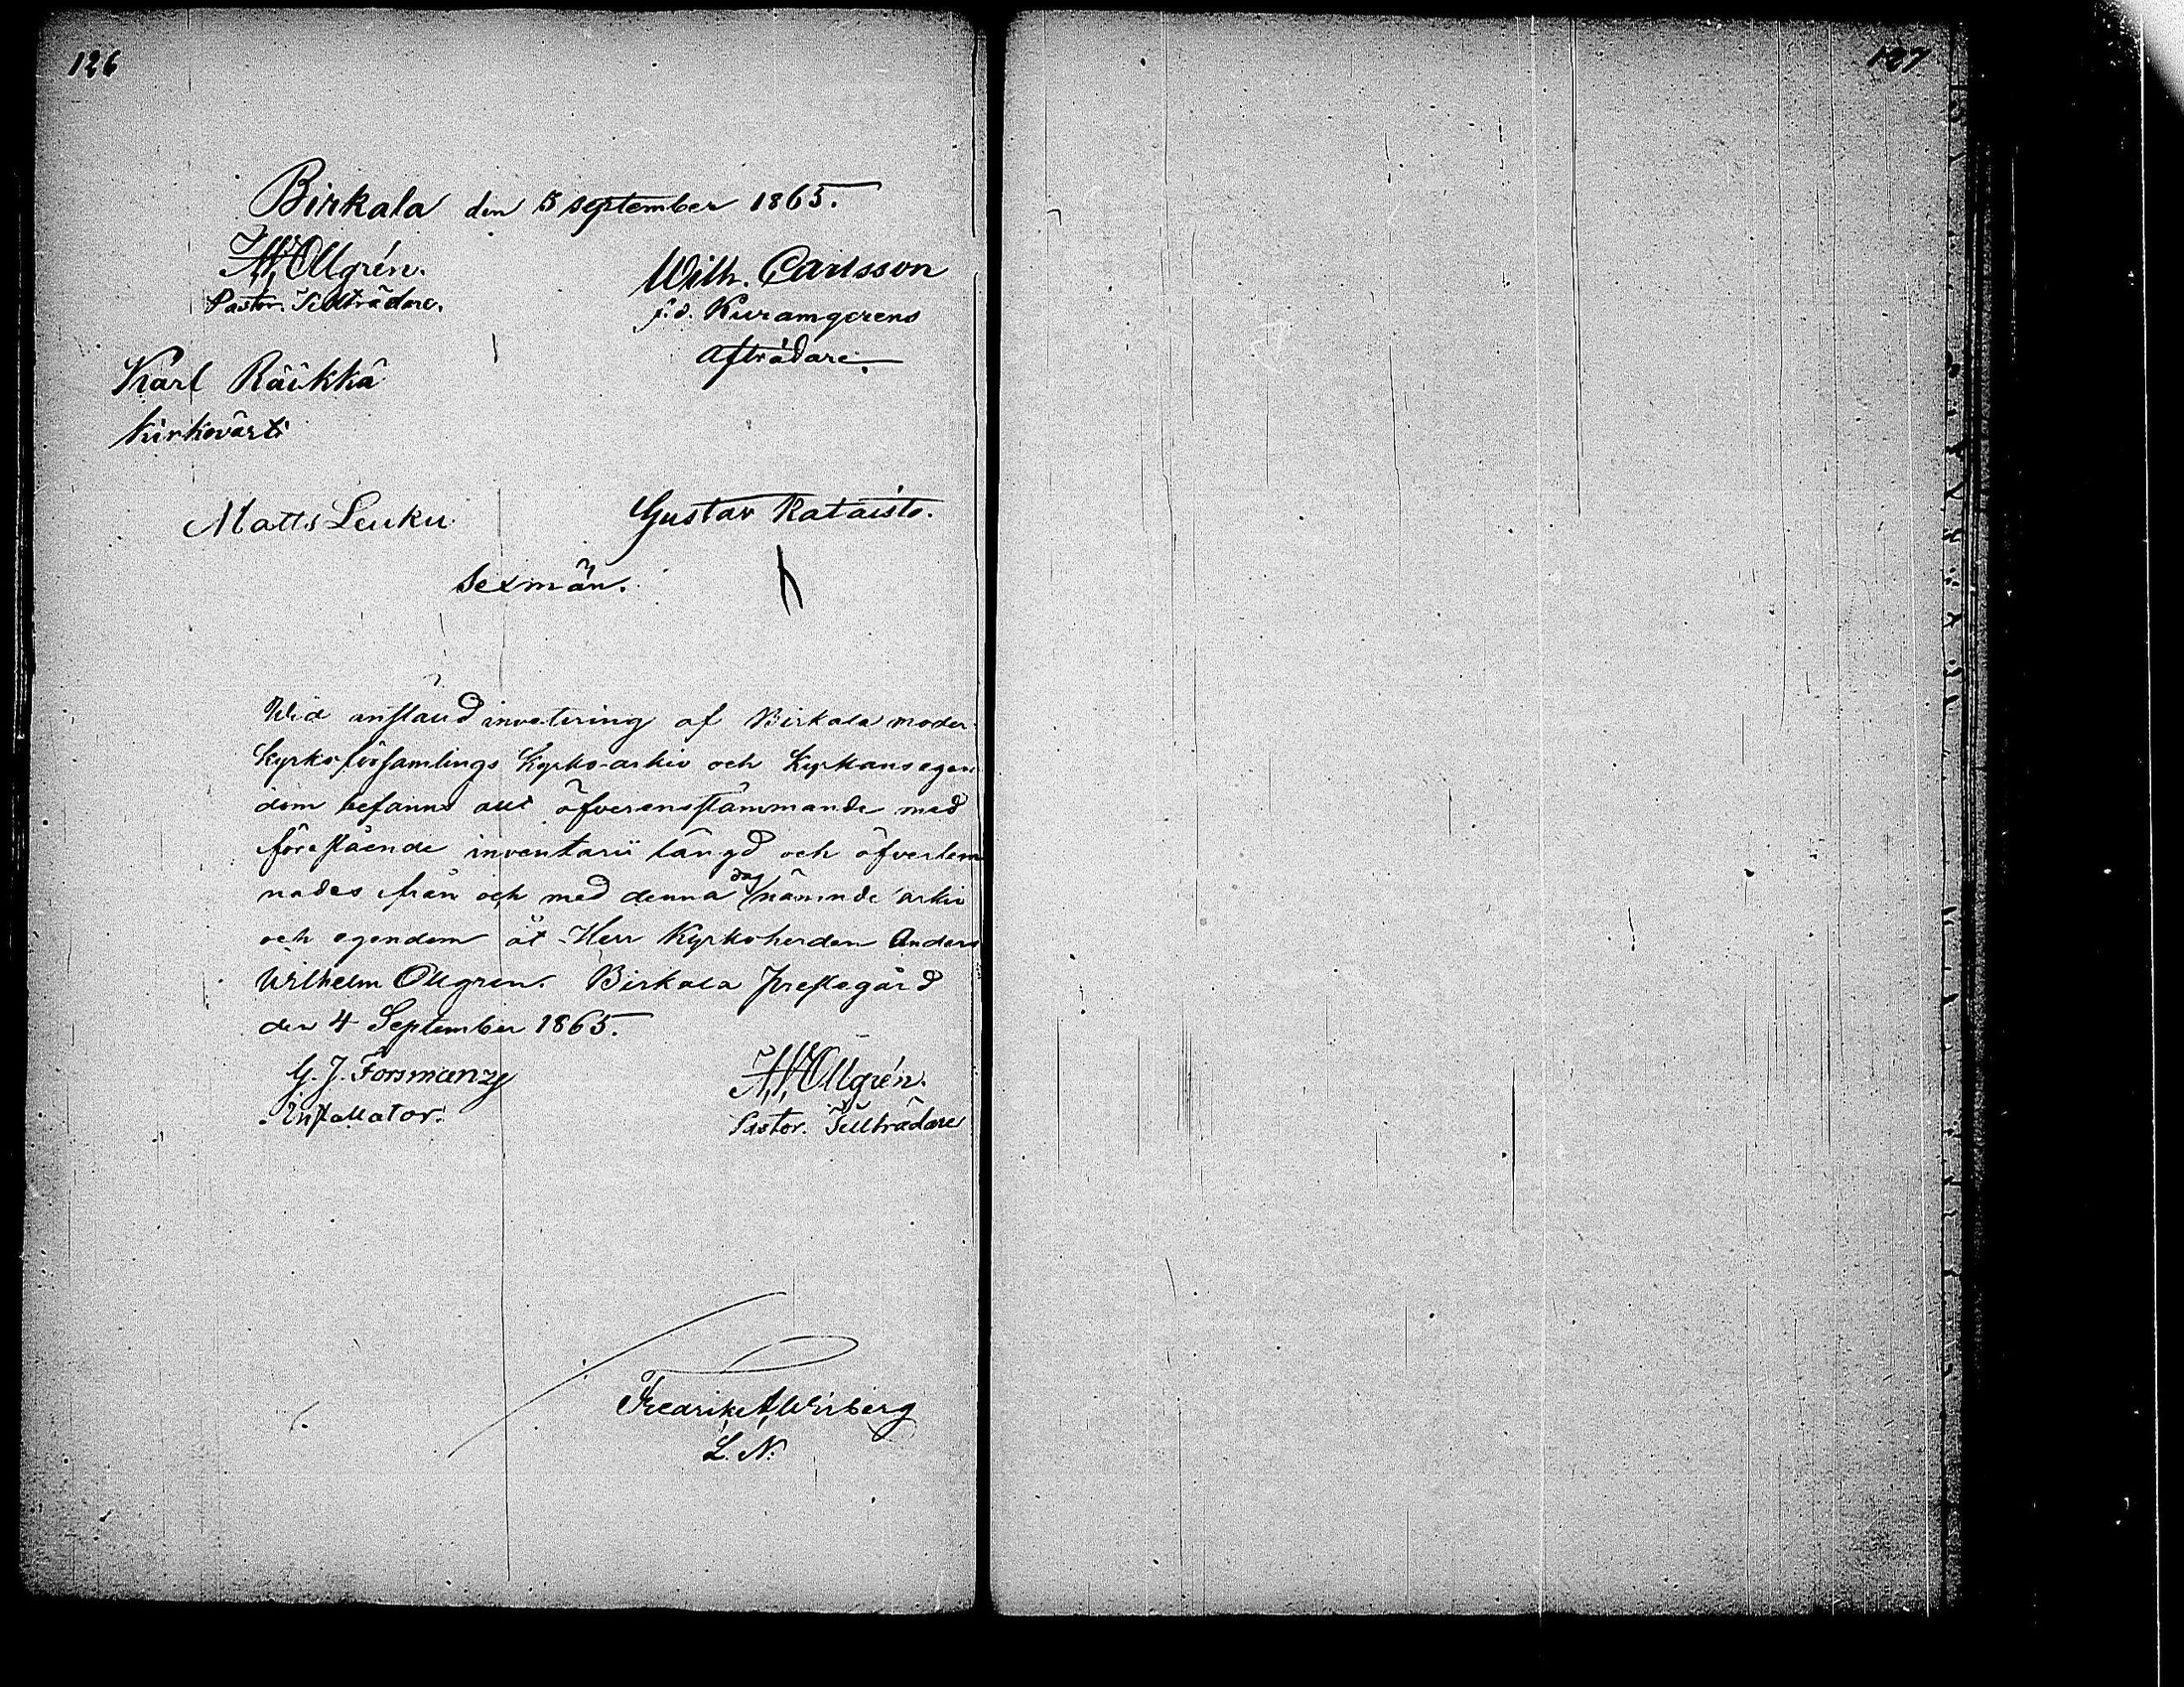 126
127
Birkala den 5 september 1865.
A.W. Ollgrén.
Pastor. Tillträdare.
Wilh. Carlsson
f.d. 
Afträdare.
Karl Räikkä
Kirkovärti
Matts Leuku
Gustav Kataisto.
Sexmän.
Wid anstäld inventering af Birkala moder
kyrkoförsamlings Kyrko-arkiv och Kyrkans egen
dom befanns allt öfverensstämmande med
förestående inventarii längd och öfverlem
nades från och med denna dag nämnde arkiv
och egendom åt Herr Kyrkoherden Anders
Wilhelm Ollgren. Birkala prestegård
den 4 September 1865.
G. J. Forsman
Installator.
A.W. Ollgrén.
Pastor. Tillträdare
Fredrik A Wirberg
L. N.